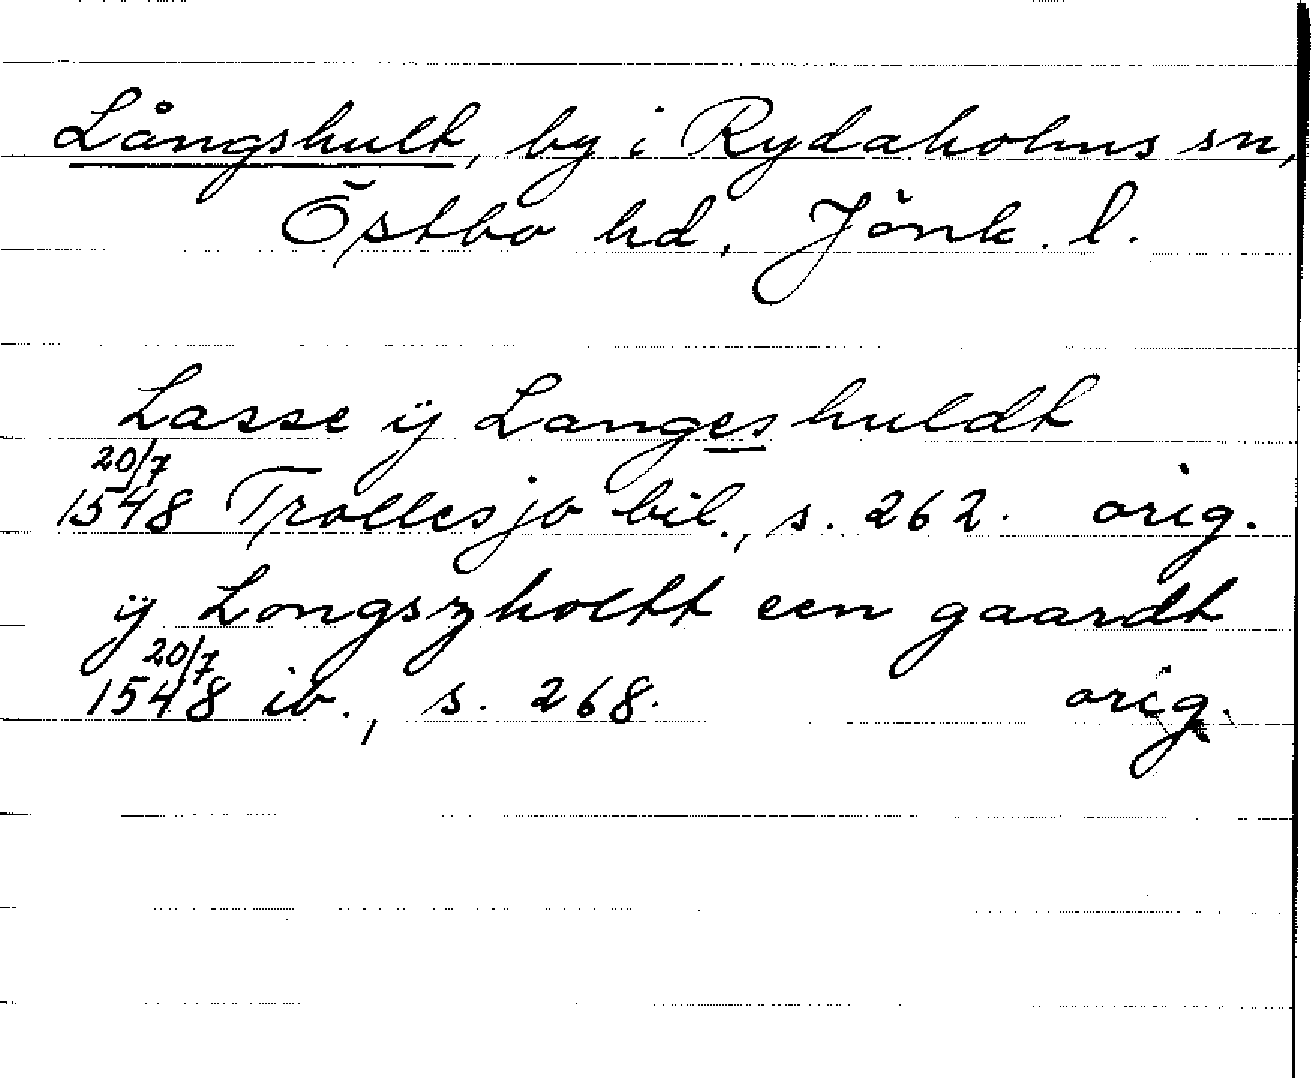 Långshult, by i Rydaholms sn,
Östbo hd, Jönk. l.
Lasse ÿ Langeshuldt
20/7
1548 Trollesjo bil., s. 262. orig.
ÿ Longszholtt een gaardt
20/7
1548 ib., s. 268. orig.